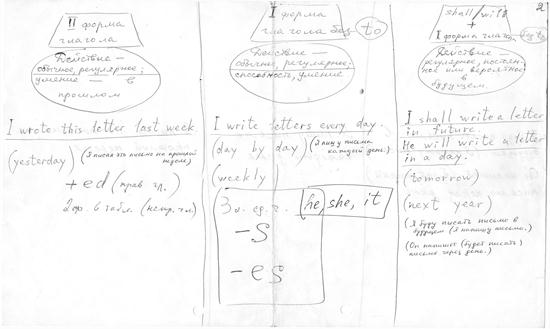 2
II форма
глагола
Действие —
обычное, регулярное;
умение — в
прошлом
I wrote this letter last week.
(yesterday) (Я писал это письмо на прошлой
неделе)
+ed (прав. гл.)
2 ф. 6 табл. (непр. гл.)
I форма
глагола без to
Действие —
обычное, регулярное;
способность, умение
I write letters every day.
(day by day) (Я пишу письма
каждый день.)
(weekly)
3 л. ед. ч. he, she, it
-s
-es
shall/will
+
I форма глагола без to
Действие —
регулярное, постоян-
ное или вероятное
в
будущем.
I shall write a letter
in future.
He will write a letter
in a day.
(tomorrow)
(next year)
(Я буду писать письмо в
будущем (Я напишу письмо.)
(Он напишет (будет писать)
письмо через день.)